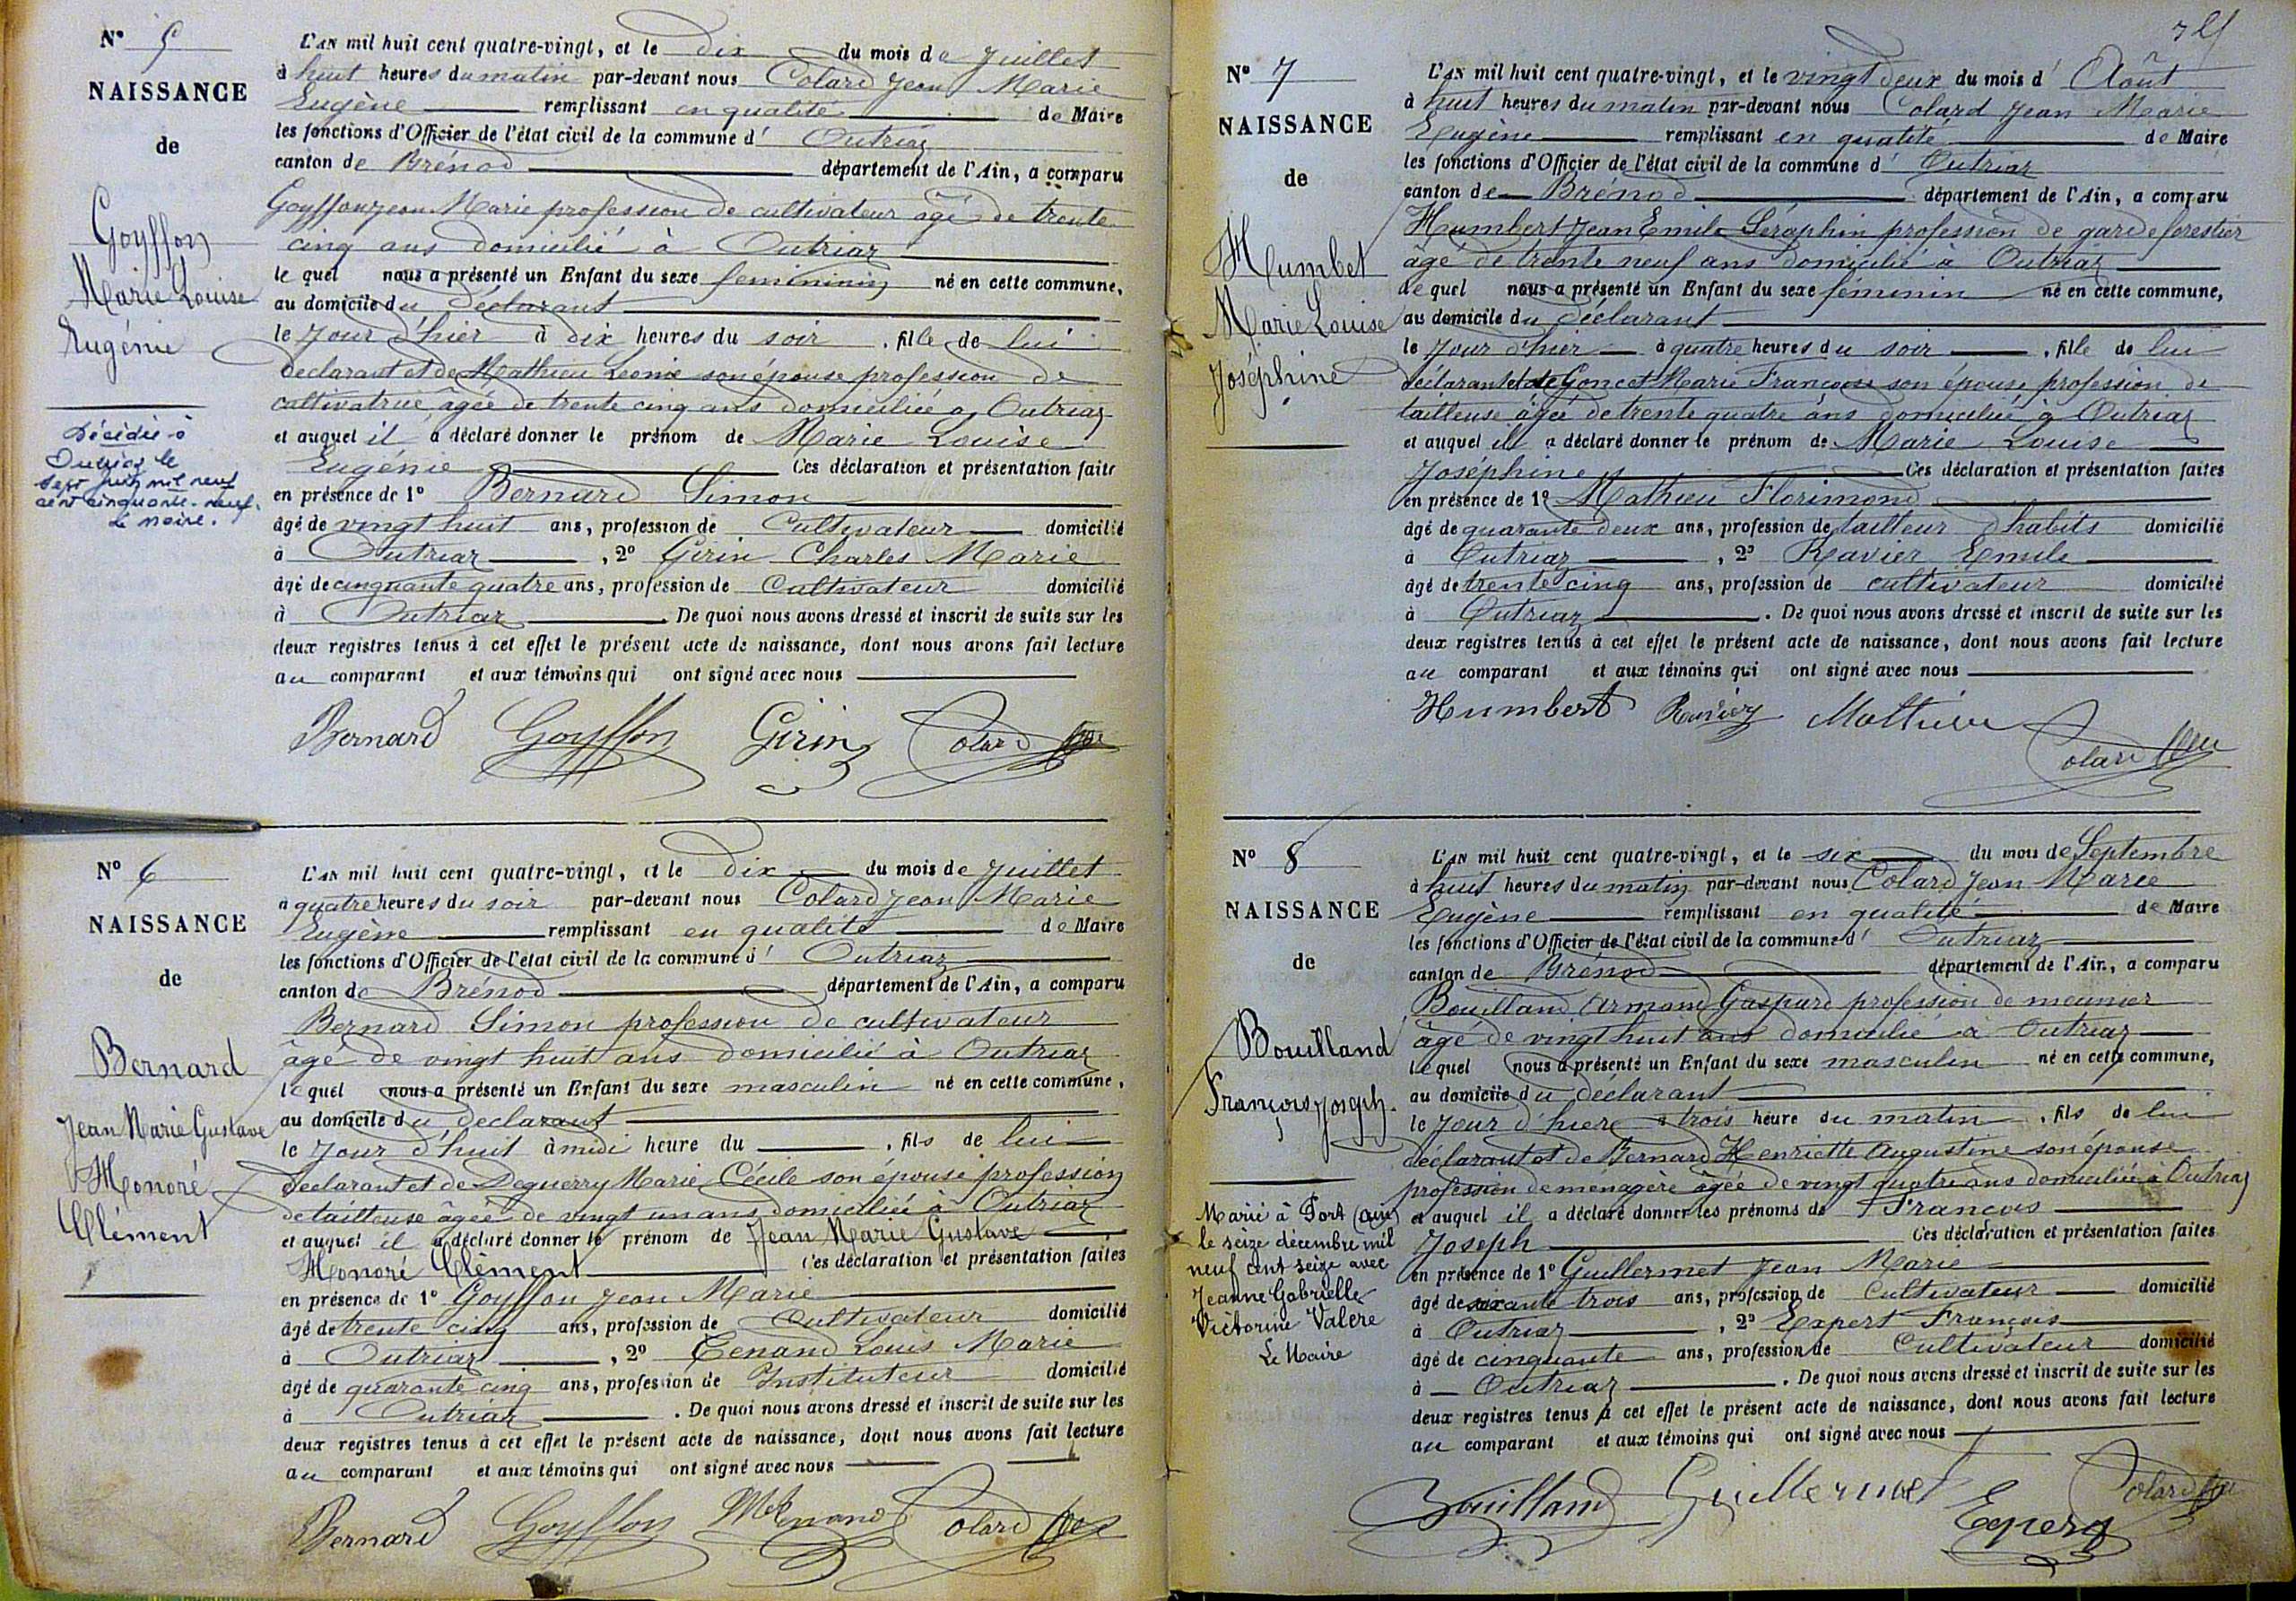 N° 5
NAISSANCE
de
Goyffon
Marie Louise
Eugénie
Décédée à
Outriaz le
sept juin mil neuf
cent cinquante-neuf.
Le maire.
L'AN mil huit cent quatre-vingt, et le dix du mois de Juillet
à huit heures du matin par-devant nous Colard Jean Marie
Eugène remplissant en qualité de Maire
les fonctions d'Officier de l'état civil de la commune d' Outriaz
canton de Brénod département de l'Ain, a comparu
Goyffon Jean Marie profession de cultivateur âgé de trente
cinq ans domicilié à Outriaz
le quel nous a présenté un Enfant du sexe femininin né en cette commune,
au domicile du déclarant
le Jour d'hier à dix heures du soir , fille de lui
déclarant et de Mathieu Leonie son épouse profession de
cultivatrice âgée de trente cinq ans domiciliée à Outriaz
et auquel il a déclaré donner le prénom de Marie Louise
Eugénie Ces déclaration et présentation faite
en présence de 1° Bernard Simon
âgé de vingt huit ans, profession de Cultivateur domicilié
à Outriaz , 2° Girin Charles Marie
âgé de cinquante quatre ans, profession de Cultivateur domicilié
à Outriaz . De quoi nous avons dressé et inscrit de suite sur les
deux registres tenus à cet effet le présent acte de naissance, dont nous avons fait lecture
au comparant et aux témoins qui ont signé avec nous
Bernard Goyffon Girin Colard
N° 6
NAISSANCE
de
Bernard
Jean Marie Gustave
Honoré
Clément
L'AN mil huit cent quatre-vingt, et le dix du mois de Juillet
à quatre heures du soir par-devant nous Colard Jean Marie
Eugène remplissant en qualité de Maire
les fonctions d'Officier de l'état civil de la commune d' Outriaz
canton de Brénod département de l'Ain, a comparu
Bernard Simon profession de cultivateur
âgé de vingt huit ans domicilié à Outriaz
le quel nous a présenté un Enfant du sexe masculin né en cette commune,
au domicile du déclarant
le Jour d'huit à midi heure du , fils de lui
déclarant et de Deguerry Marie Cécile son épouse profession
de tailleuse âgée de vingt un ans domiciliée à Outriaz
et auquel il a déclaré donner le prénom de Jean Marie Gustave
Honoré Clément Ces déclaration et présentation faites
en présence de 1° Goyffon Jean Marie
âgé de trente cinq ans, profession de Cultivateur domicilié
à Outriaz , 2° Tenand Louis Marie
âgé de quarante cinq ans, profession de Instituteur domicilié
à Outriaz . De quoi nous avons dressé et inscrit de suite sur les
deux registres tenus à cet effet le présent acte de naissance, dont nous avons fait lecture
au comparant et aux témoins qui ont signé avec nous
Bernard Goyffon Colard
N° 7
NAISSANCE
de
Humbet
Marie Louise
Joséphine
L'AN mil huit cent quatre-vingt, et le vingt deux du mois d' Août
à huit heures du matin par-devant nous Colard Jean Marie
Eugène remplissant en qualité de Maire
les fonctions d'Officier de l'état civil de la commune d' Outriaz
canton de Brénod département de l'Ain, a comparu
Humbert Jean Emile Séraphin profession de garde forestier
âgé de trente neuf ans domicilié à Outriaz
le quel nous a présenté un Enfant du sexe féminin né en cette commune,
au domicile du déclarant
le Jour d'hier à quatre heures du soir , fille de lui
déclarant et de Goncet Marie Francoise son épouse profession de
tailleuse âgée de trente quatre ans domiciliée à Outriaz
et auquel il a déclaré donner le prénom de Marie Louise
Joséphine Ces déclaration et présentation faites
en présence de 1° Mathieu Florimond
âgé de quarante deux ans, profession de tailleur d'habits domicilié
à Outriaz , 2° Ravier Emile
âgé de trente cinq ans, profession de cultivateur domicilié
à Outriaz . De quoi nous avons dressé et inscrit de suite sur les
deux registres tenus à cet effet le présent acte de naissance, dont nous avons fait lecture
au comparant et aux témoins qui ont signé avec nous
Humbert Ravier Mathieu
Colard
N° 8
NAISSANCE
de
Bouilland
François Joseph.
Marié à Port (Ain)
le seize décembre mil
neuf cent seize avec
Jeanne Gabrielle
Victorine Valere
Le Maire
L'AN mil huit cent quatre-vingt, et le six du mois de Septembre
à huit heures du matin par-devant nous Colard Jean Marie
Eugène remplissant en qualité de Maire
les fonctions d'Officier de l'état civil de la commune d' Outriaz
canton de Brénod département de l'Ain, a comparu
Bouilland Armand Gaspard profession de meunier
âgé de vingt huit ans domicilié à Outriaz
le quel nous a présenté un Enfant du sexe masculin né en cette commune,
au domicile du déclarant
le Jour d'hier à trois heure du matin , fils de lui
déclarant et de Bernard Henriette Augustine son épouse
profession de menagère âgée de vingt quatre ans domiciliée à Outriaz
et auquel il a déclaré donner les prénoms de Francois
Joseph Ces déclaration et présentation faites
en présence de 1° Guillermet Jean Marie
âgé de soixante trois ans, profession de Cultivateur domicilié
à Outriaz , 2° Expert François
âgé de cinquante ans, profession de Cultivateur domicilié
à Outriaz . De quoi nous avons dressé et inscrit de suite sur les
deux registres tenus à cet effet le présent acte de naissance, dont nous avons fait lecture
au comparant et aux témoins qui ont signé avec nous
Bouilland Guillermet Expert Colard